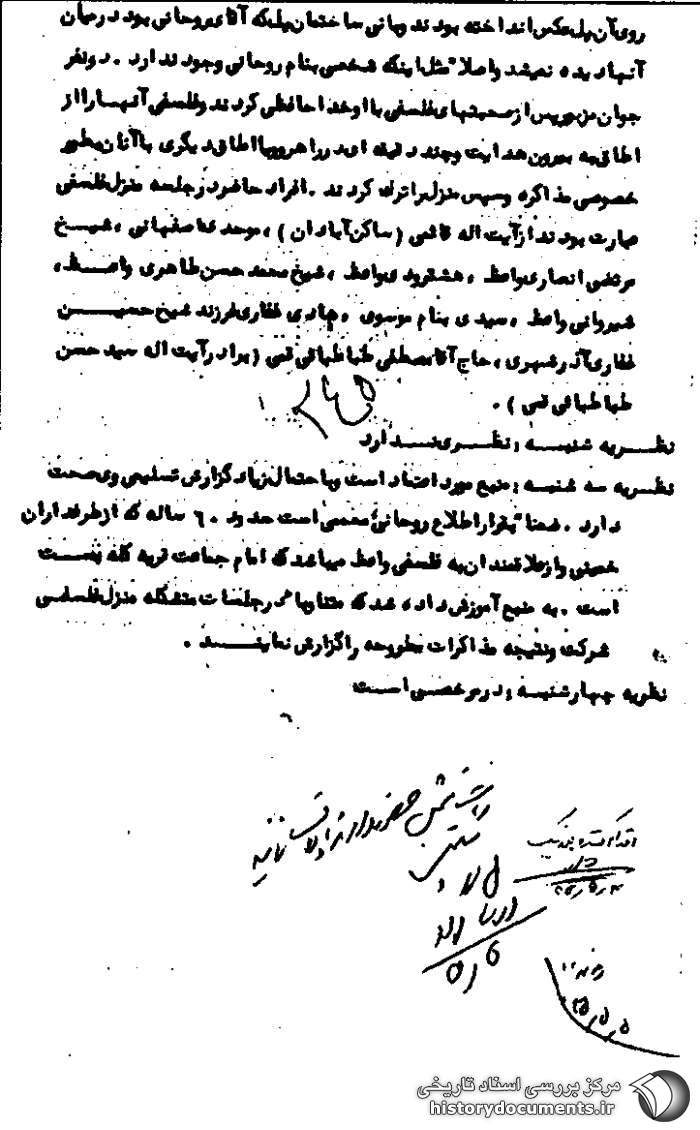 روی آن پل عکس انداخته بودند و بانی ساختمان پل که آقای روحانی بود در میان
آنها دیده نمیشد و اصلا" مثل اینکه شخصی بنام روحانی وجود ندارد . دونفر
جوان مزبور پس از صحبتهای فلسفی با او خدا حافظی کردند و فلسفی آنها را از
اطاق به بیرون هدایت و چند دقیقه ای در راهرو و یا اطاق دیگری با آنان بطور
خصوصی مذاکره و سپس منزل را ترک کردند . افراد حاضر در جلسه منزل فلسفی
عبارت بودند از آیت اله قائمی ( ساکن آبادان ) ، موحدی اصفهانی ، شیخ
مرتضی انصاری واعظ ، هشترودی واعظ ، شیخ محمد حسن طاهری واعظ ،
شیروانی واعظ ، سیدی بنام موسوی ، هادی غفاری فرزند شیخ حسین
غفاری آذرشهری ، حاج آقا مصطفی طباطبائی قمی ( برادر آیت اله سید حسن
طباطبائی قمی ) .
نظریه شنبه : نظری ندارد
نظریه سه شنبه : منبع مورد اعتماد است و با احتمال زیاد گزارش تسلیمی وی صحت
دارد . ضمنا" بقرار اطلاع روحانی معممی است حدود ۶۰ ساله که از طرفداران
خمینی و از علاقمندان به فلسفی واعظ میباشد که امام جماعت قریه
است . به منبع آموزش داده شد که متناوبا" در جلسات متشکله منزل فلسفی
شرکت و نتیجه مذاکرات مطروحه را گزارش نمایند .
نظریه چهارشنبه : در مرخصی است
مرکز بررسی اسناد تاریخی
historydocuments.ir